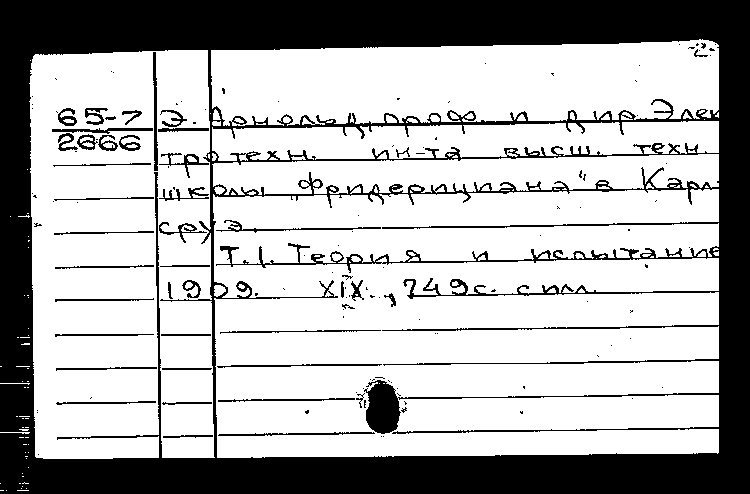 -2-
65-7 Э. Арнольд, проф. и дир. Элек
2666
тротехн. ин-та высш. техн.
школы „Фридерициана" в Карл
сруэ.
Т.1. Теория и испытание
1909. XIX., 749с. с илл.